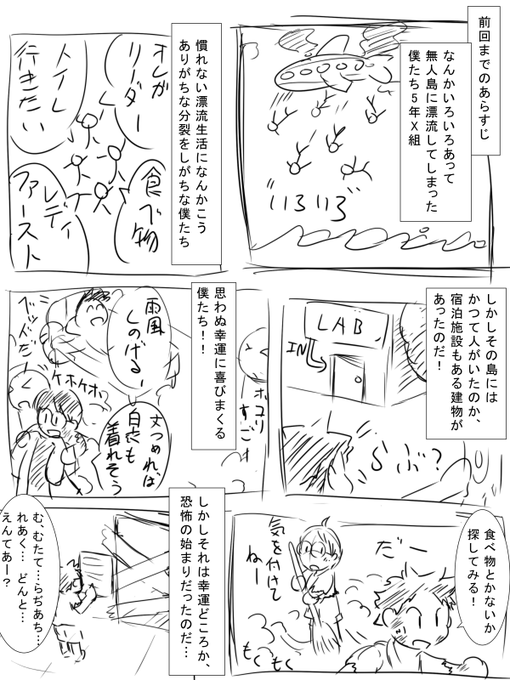 前回までのあらすじ
なんかいろいろあって
無人島に漂流してしまった
僕たち5年X組
いろいろ
慣れない漂流生活になんかこう
ありがちな分裂をしがちな僕たち
オレが
リーダー
トイレ
行きたい
食べ物
レディ
ファースト
しかしその島には
かつて人がいたのか、
宿泊施設もある建物が
あったのだ！
LAB
IN
らぶ？
思わぬ幸運に喜びまくる
僕たち！！
雨風
しのげるー
ホコリ
すごい
ケホケホ
丈つめれば
白衣も
着れそう
食べ物とかないか
探してみる！
だー
気を付けて
ねー
もくもく
しかしそれは幸運どころか、
恐怖の始まりだったのだ…
む、むたて…らぢあち…
れあく…　どんと…
えんてあー？